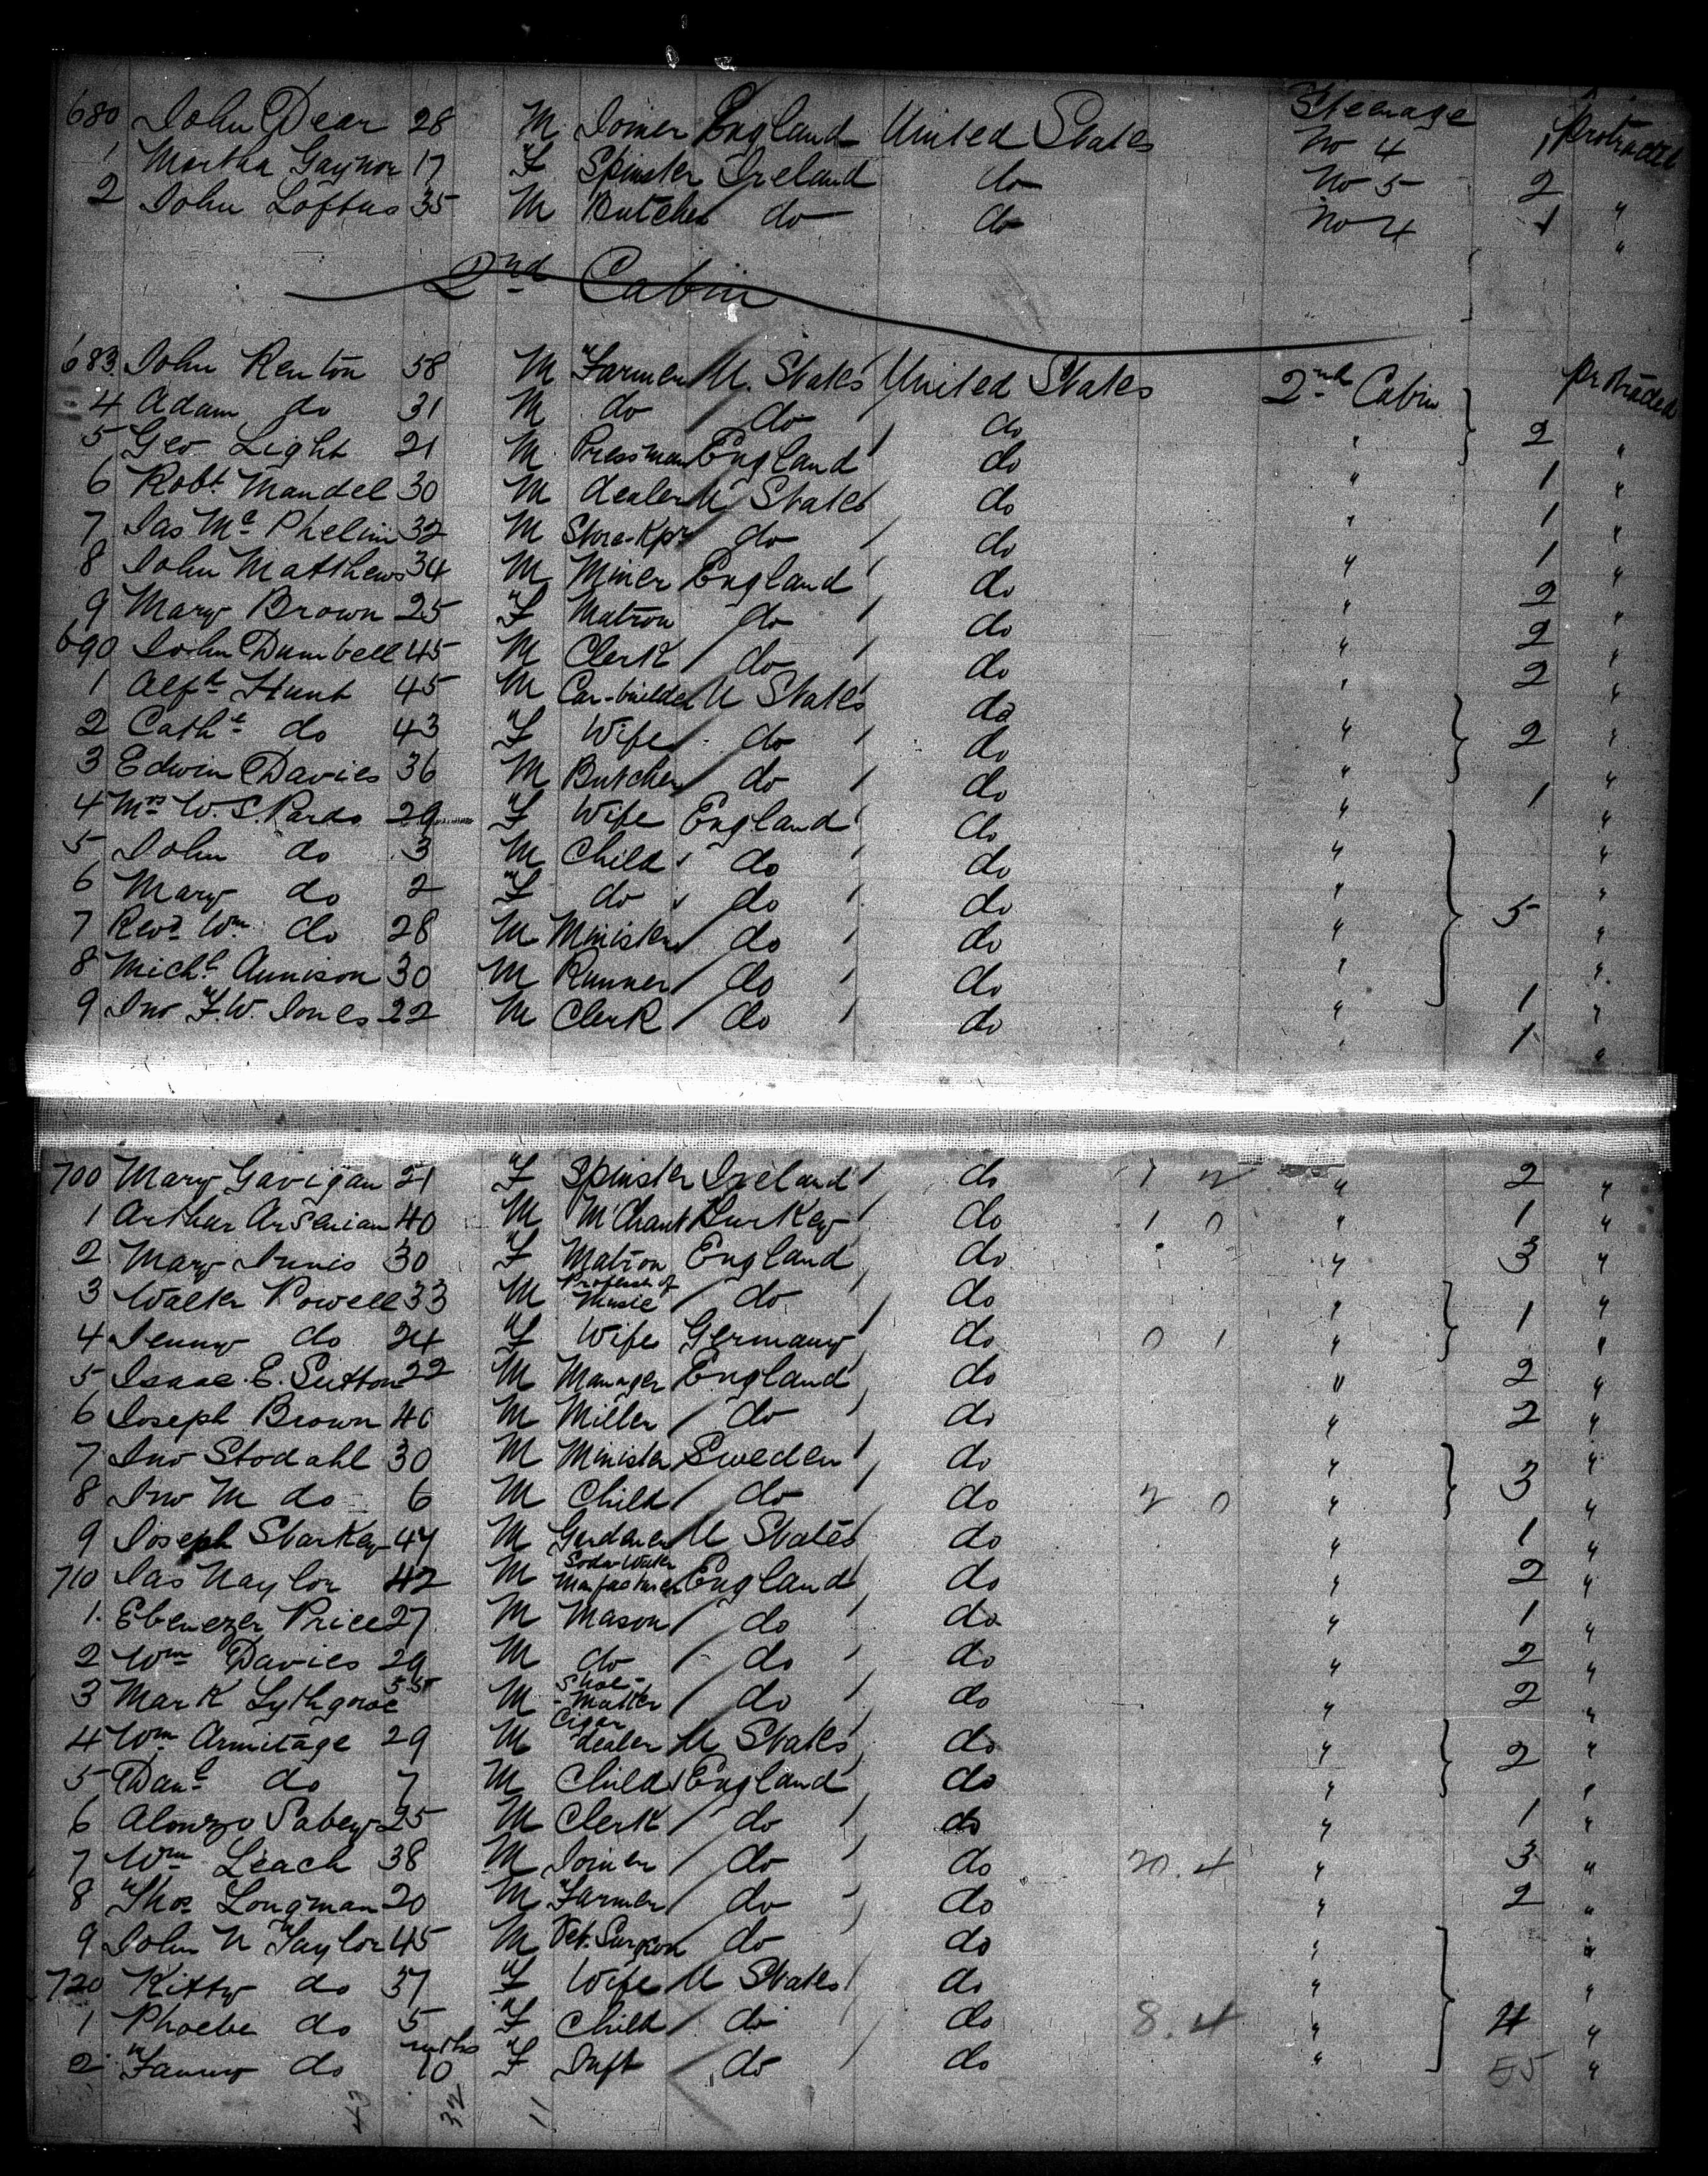 680 John Dear 28 M Joiner England United States Steerage No 4 1 protracted
1 Martha Gaynor 17 F Spinster Ireland do No 5 2 "
2 John Loftus 35 M Butcher do do No 4 1 "
2nd Cabin
683 John Renton 58 M Farmer U. States United States 2nd Cabin protracted
4 Adam do 31 M do do do " 2 "
5 Geo Light 21 M Pressman England do " 1 "
6 Robt Mandel 30 M dealer U States do " 1 "
7 Jas Mc Phelim 32 M Store-Kpr do do " 1 "
8 John Matthews 34 M Miner England do " 2 "
9 Mary Brown 25 F Matron do do " 2 "
690 John Dumbell 45 M Clerk do do " 2 "
1 Alfd Hunt 45 M Car-builder U States do "
2 Cathe do 43 F Wife do do " 2 "
3 Edwin Davies 36 M Butcher do do " 1 "
4 Mrs W. S. Pardo 29 F Wife England do " "
5 John do 3 M Child do do " "
6 Mary do 2 F do do do " 5 "
7 Revd Wm do 28 M Minister do do " "
8 Michl Annison 30 M Runner do do " 1 "
9 Jno F. W. Jones 22 M Clerk do do " 1 "
700 Mary Gavigan 21 F Spinster Ireland do " 2 "
1 Arthur Arsenian 40 M M'Chant Turkey do 1 0 " 1 "
2 Mary Innis 30 F Matron England do " 3 "
3 Walter Powell 33 M Professr of Music do do " 1 "
4 Jenny do 24 F Wife Germany do 0 1 " "
5 Isaac E. Sutton 22 M Manager England do " 2 "
6 Joseph Brown 46 M Miller do do " 2 "
7 Jno Stodahl 30 M Minister Sweden do " 3 "
8 Jno M do 6 M Child do do 2 0 " "
9 Joseph Starkey 47 M Gardener U States do " 1 "
710 Jas Naylor 42 M Soda-Water Manfacturer England do " 2 "
1 Ebenezer Price 27 M Mason do do " 1 "
2 Wm Davies 29 M do do do " 2 "
3 Mark Lythgoe 55 M Shoe-Maker do do " 2 "
4 Wm Armitage 29 M Cigar dealer U States do " 2 "
5 Danl do 7 M Child England do " "
6 Alonzo Sabey 25 M Clerk do do " 1 "
7 Wm Leach 38 M Joiner do do 20.4 " 3 "
8 Thos Longman 20 M Farmer do do " 2 "
9 John N Taylor 45 M Vet. Surgeon do do " "
720 Kitty do 37 F Wife U States do " "
1 Phoebe do 5 F Child do do 8.4 " 4 "
2 Fanny do mths 10 F Inft do do " "
55
32 11